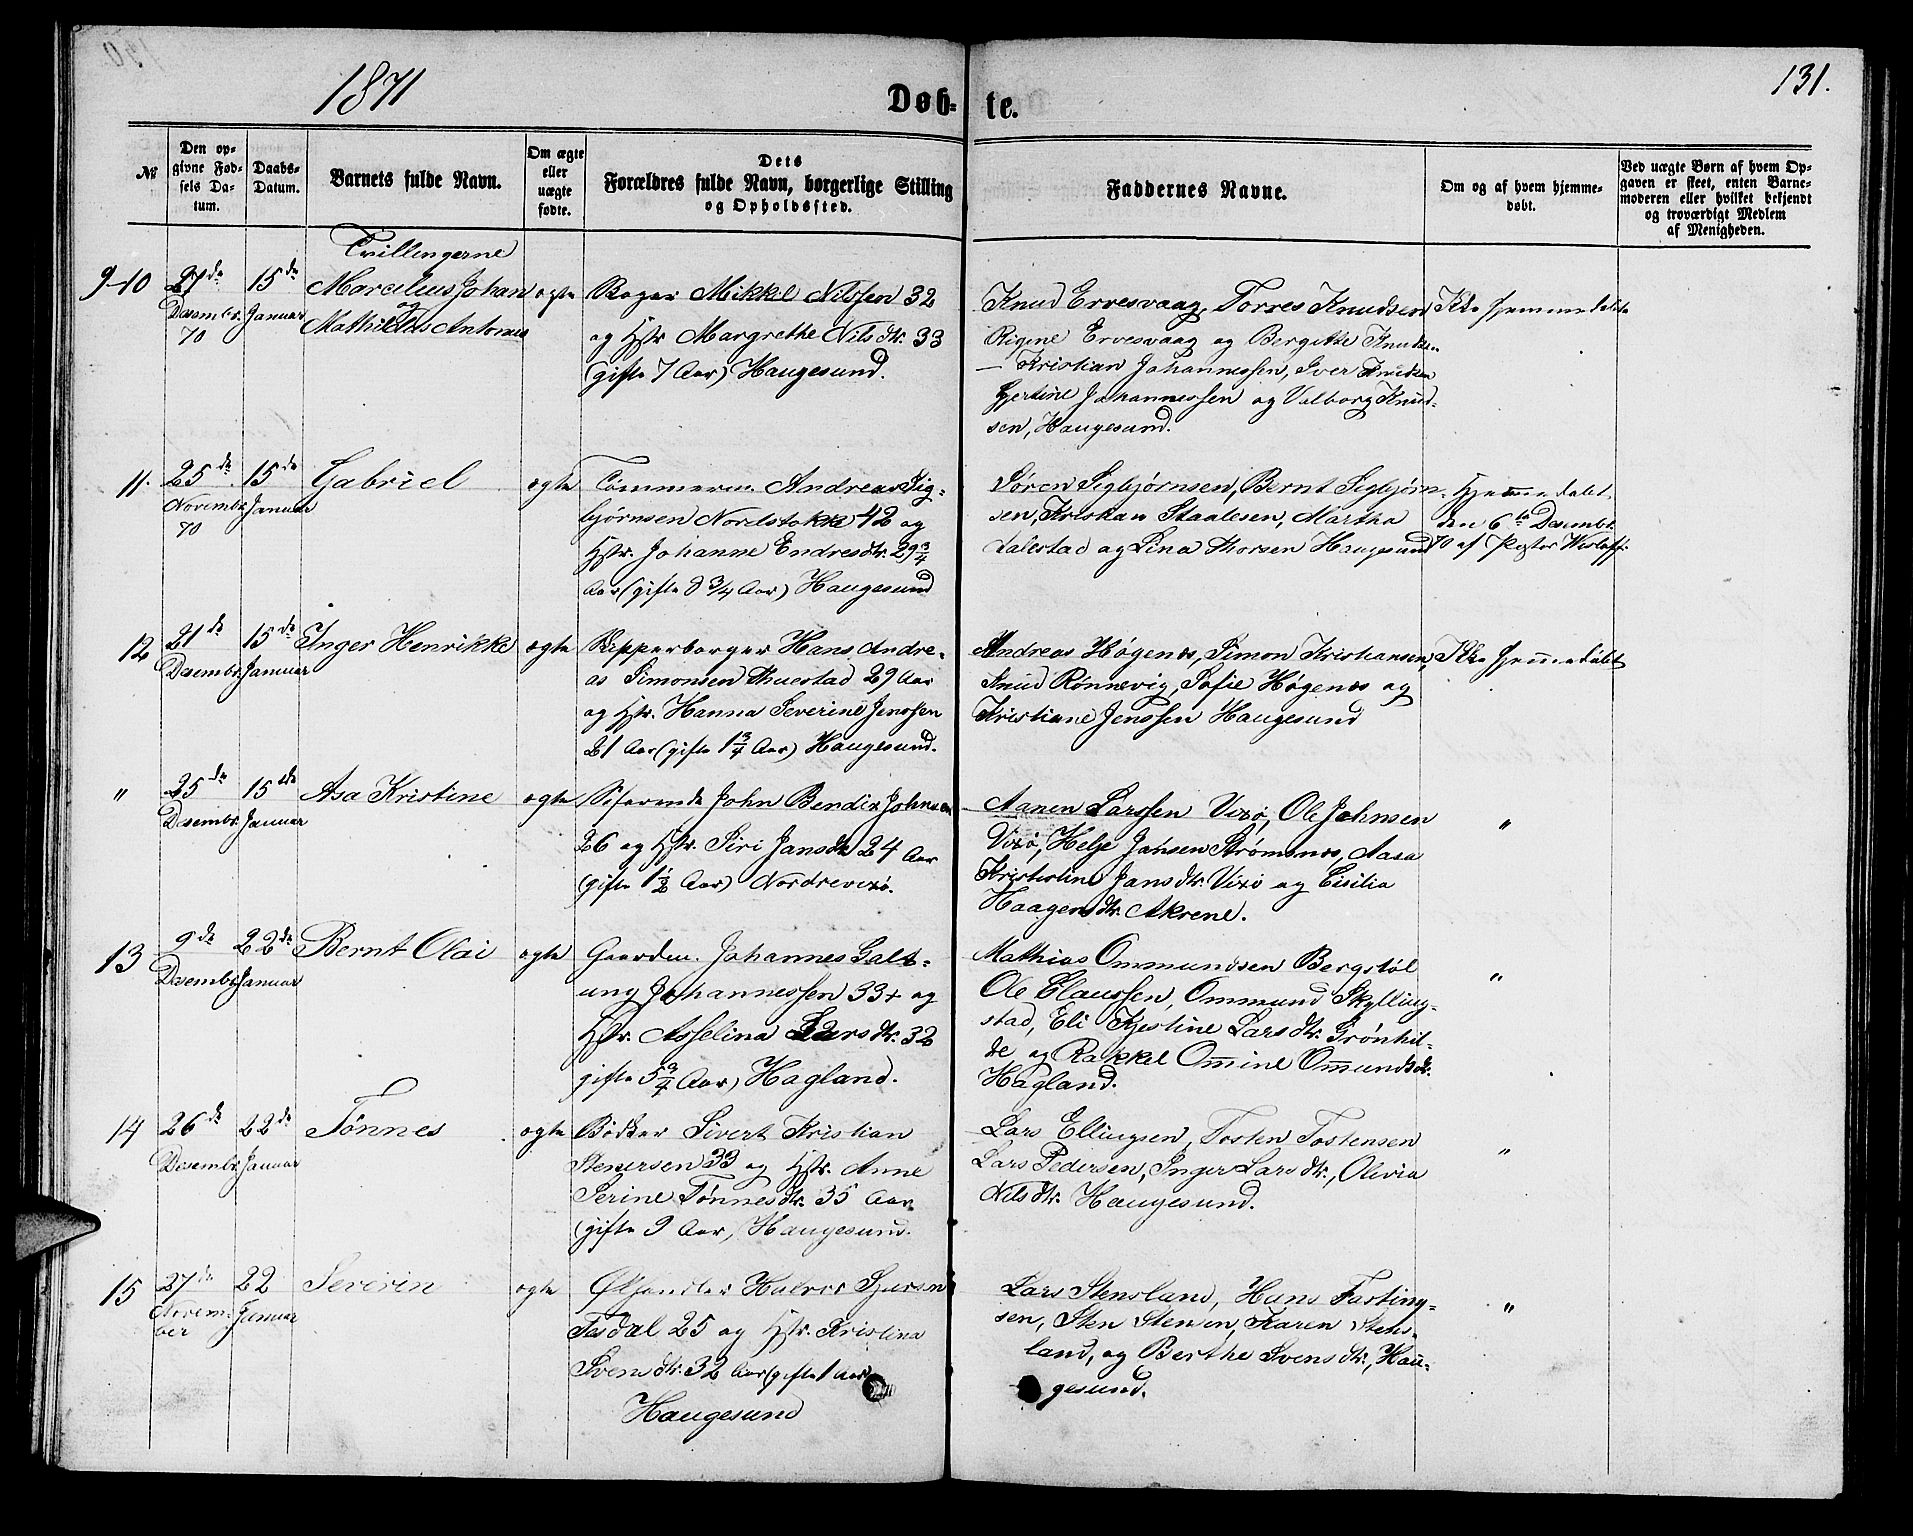 1871
Døb-
te.
131.
№
Den op-
givne Fød-
sels Da-
tum.
Daabs-
Datum.
Barnets fulde Navn.
Om ægte
eller
uægte
fødte.
Dets
Forældres fulde Navn, borgerlige Stilling
og Opholdssted.
Faddernes Navne.
Om og af hvem hjemme-
døbt.
Ved uægte Børn af hvem Op-
gaven er skeet, enten Barne-
moderen eller hvilket bekjendt
og troværdigt Medlem
af Menigheden.
9-10
27de
Desembr.
70
15de
Januar
Tvillingerne
Marcelius Johan
og
Mathilde Antonie
ægte
Bager Mikkel Nilssen 32
og Hstr Margrethe Nilsdtr. 33
(gifte 7 Aar) Haugesund.
Knud Ervesvaag, Torres Knudsen
Rigene Ervesvaag og Bergitte Knudsen
— Kristian Johannessen, Iver Knudsen
Gjertine Johannessen og Valborg Knud-
sen, Haugesund.
Ikke hjemmedøbte
11.
25de
Novembr.
70
15de
Januar
Gabriel
ægte
Tømmerm. Andreas Sig-
bjørnsen Nordstokke 42 og
Hstr. Johanne Endresdtr. 29 3/4
Aar (gifte 8 3/4 Aar) Haugesund
Søren Sigbjørnsen, Bernt Sigbjørn-
sen, Kristian Staalesen, Martha
dalestad og Lina Thorsen Haugesund
Hjemmedøbt
den 6te Desembr.
70 af Pastor
12
21de
Desembr.
15de
Januar
Inger Henrikke
ægte
Hans Andre-
as Simonsen Thuestad 29 Aar
og Hstr. Hanna Severine Jenssen
21 Aar (gifte 1 3/4 Aar) Haugesund.
Andreas Høgenæs, Simon Kristiansen,
Knud Rønnevig, Sofie Høgenæs og
Kristiane Jenssen Haugesund
Ikke hjemmedøbt
"
25de
Desembr.
15de
Januar
Asa Kristine
ægte
Søfarende John Bendix Johnsen
26 og Hstr. Siri Jansdtr 24 Aar
(gifte 1 1/2 Aar) Nordrevixø.
Aanen Larssen Vixø, Ole Johnsen
Vixø, Helje Jansen Strømsnæs, Aasa
Jansdtr. Vixø og Cisilia
Haagensdtr. Akrene.
"
13
9de
Desembr.
22de
Januar
Bernt Olai
ægte
Gaardm. Johannes Galt-
ung Johannessen 33 og
Hstr. Asselina Larsdtr. 32
gifte 5 3/4 Aar) Hagland.
Mathias Ommundsen Bergstøl
Ole Claussen, Ommund Skylling-
stad, Eli Kjestine Larsdtr. Grønhil-
de, og Rakkel Omine Omundsdtr.
Hagland.
"
14
26de
Desembr.
22de
Januar
Tønnes
ægte
Bødker Sivert Kristian
Stenersen 33 og Hstr. Anne
Serine Tønnesdtr. 35 Aar
(gifte 9 Aar) Haugesund.
Lars Ellingsen, Tosten Tostensen
Lars Pedersen, Inger Larsdtr., Olivia
Nilsdtr. Haugesund.
"
15
27de
Novem-
ber
22
Januar
Severin
ægte
Ølhandler Halvor
Tesdal 25 og Hstr. Kristina
Svensdtr. 32 Aar (gifte 1 Aar)
Haugesund
Lars Stensland, Hans Farting-
sen, Sten Stensen, Karen Stens-
land, og Berthe Svensdtr., Hau-
gesund.
"